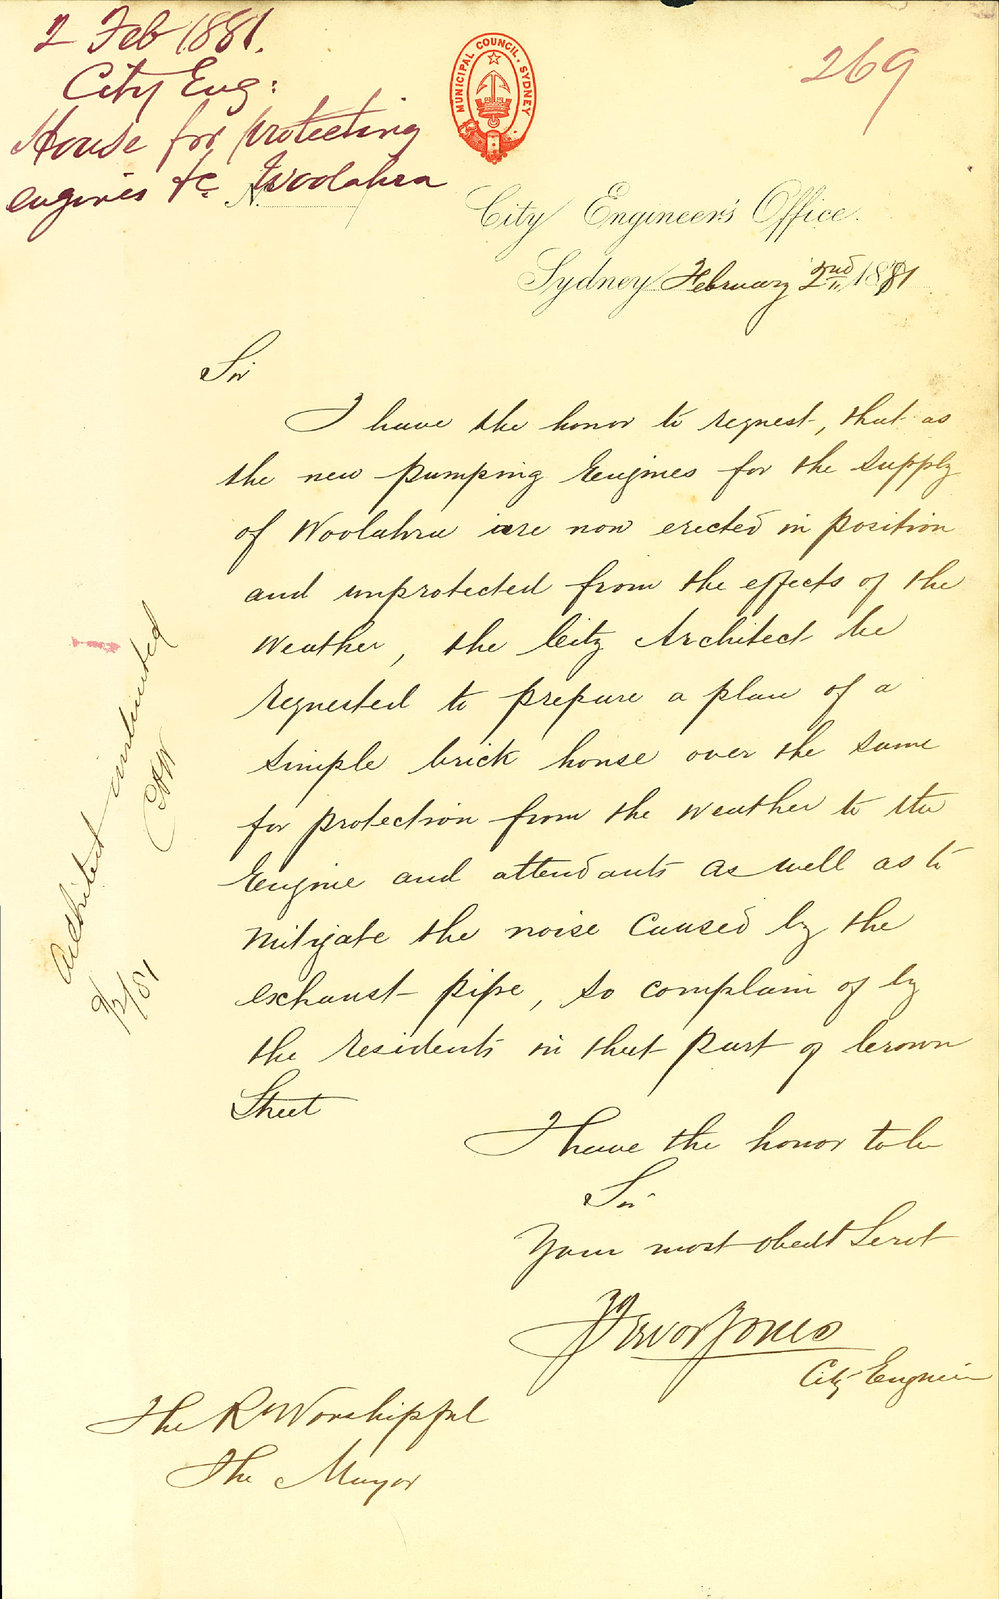 2 Feb 1881.
City Eng:
House for protecting
engines &c Woolahra
269
MUNICIPAL COUNCIL, SYDNEY
N.
City Engineer's Office.
Sydney February 2nd 1881
Sir
I have the honor to request, that as
the new pumping Engines for the supply
of Woolahra are now erected in position
and unprotected from the effects of the
weather, the City Architect be
requested to prepare a plan of a
simple brick house over the same
for protection from the weather to the
Engine and attendants as well as to
mitigate the noise caused by the
exhaust pipe, so complain of by
the residents in that part of Crown
Street
I have the honor to be
Sir
Your most obedt Servt
Trevor Jones
City Engineer
The Rt Worshipful
The Mayor
Architect instructed